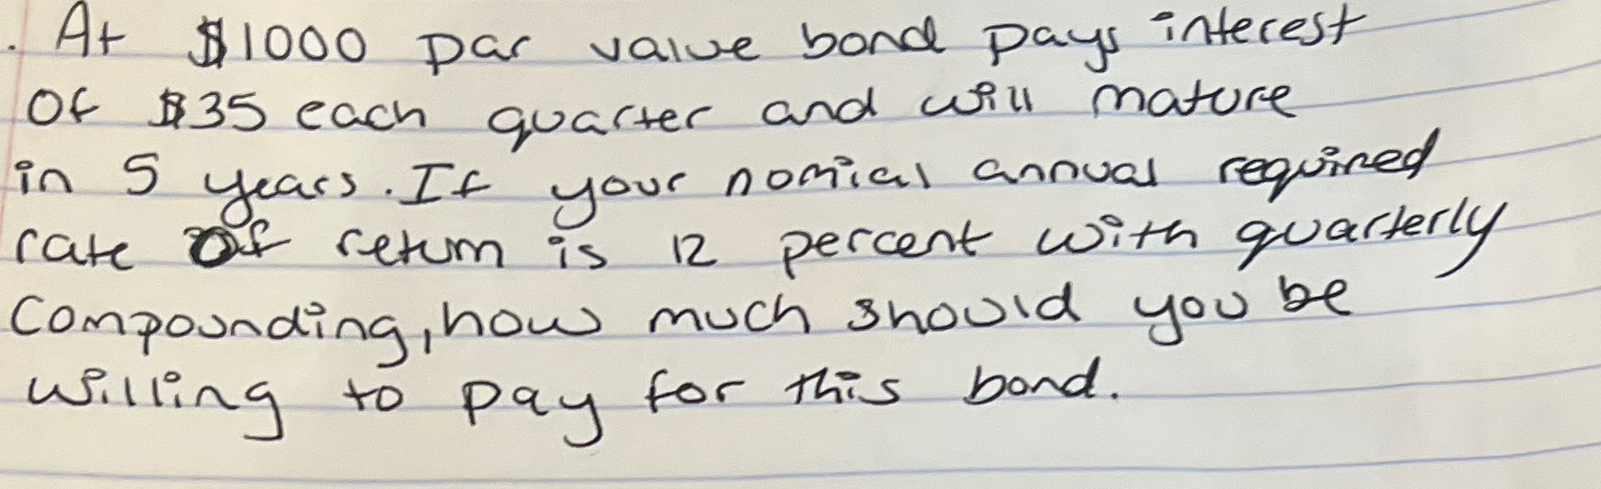 . At $1000 par value bond pays interest
of $35 each quarter and will mature
in 5 years. If your nomial annual required
rate of return is 12 percent with quarterly
compounding, how much should you be
willing to pay for this bond.